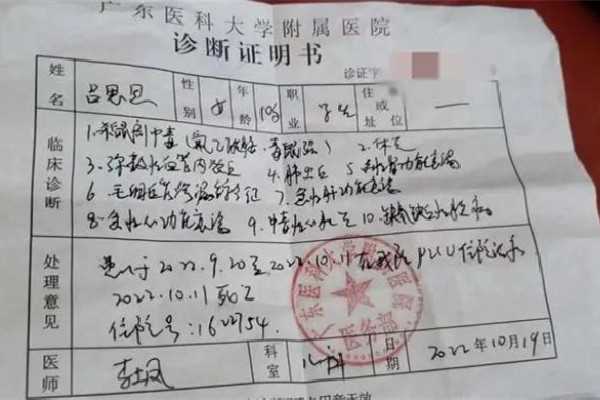 广东医科大学附属医院
诊断证明书
诊证字
姓名 吕思思 性别 女 年龄 10岁 职业 学生 住址或单位 —
临床诊断 1.杀鼠剂中毒（氟乙酰胺、毒鼠强） 2.
3.弥散性血管内凝血 4.肺出血 5.急性肾功能衰竭
6.毛细血管渗漏综合征 7.急性肝功能衰竭
8.急性心功能衰竭 9.中毒性心肌炎 10.缺氧缺血性脑病
处理意见 患儿于2022.9.20至2022.10.11在我院PICU住院治疗
2022.10.11死亡
住院号：1622754.
医师 科室 儿科 日期 2022年10月19日
广东医科大学附属医院
医务部